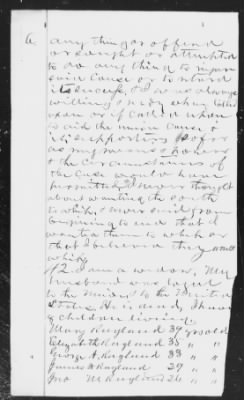 6
any thing or offend
or sought or attempted
to do any thing to injure
said Cause or to retard
its success, I was always
willing & ready when Called
upon or if Called upon
to aid the union Cause &
its supporters So far
as my means & power
& the circumstances of
the Case would have
permitted, I never thought
about wanting the south
to whip, I never said from
beginning to end that I
wanted them to whip or
that I believed they would
whip
12 I am a widow, My
husband was loyal
to the
States. He is dead, I have
6 children living.
Mary Ragland 39 yrs old
Elizabeth Ragland 35 " "
George A. Ragland 33 " "
James Ragland 29 " "
Jno M. Ragland 26 " "